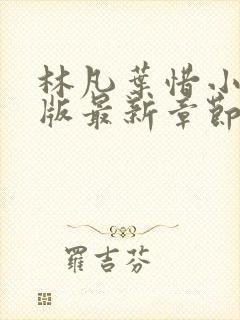 林凡葉惜小
版最新章節
羅吉芬